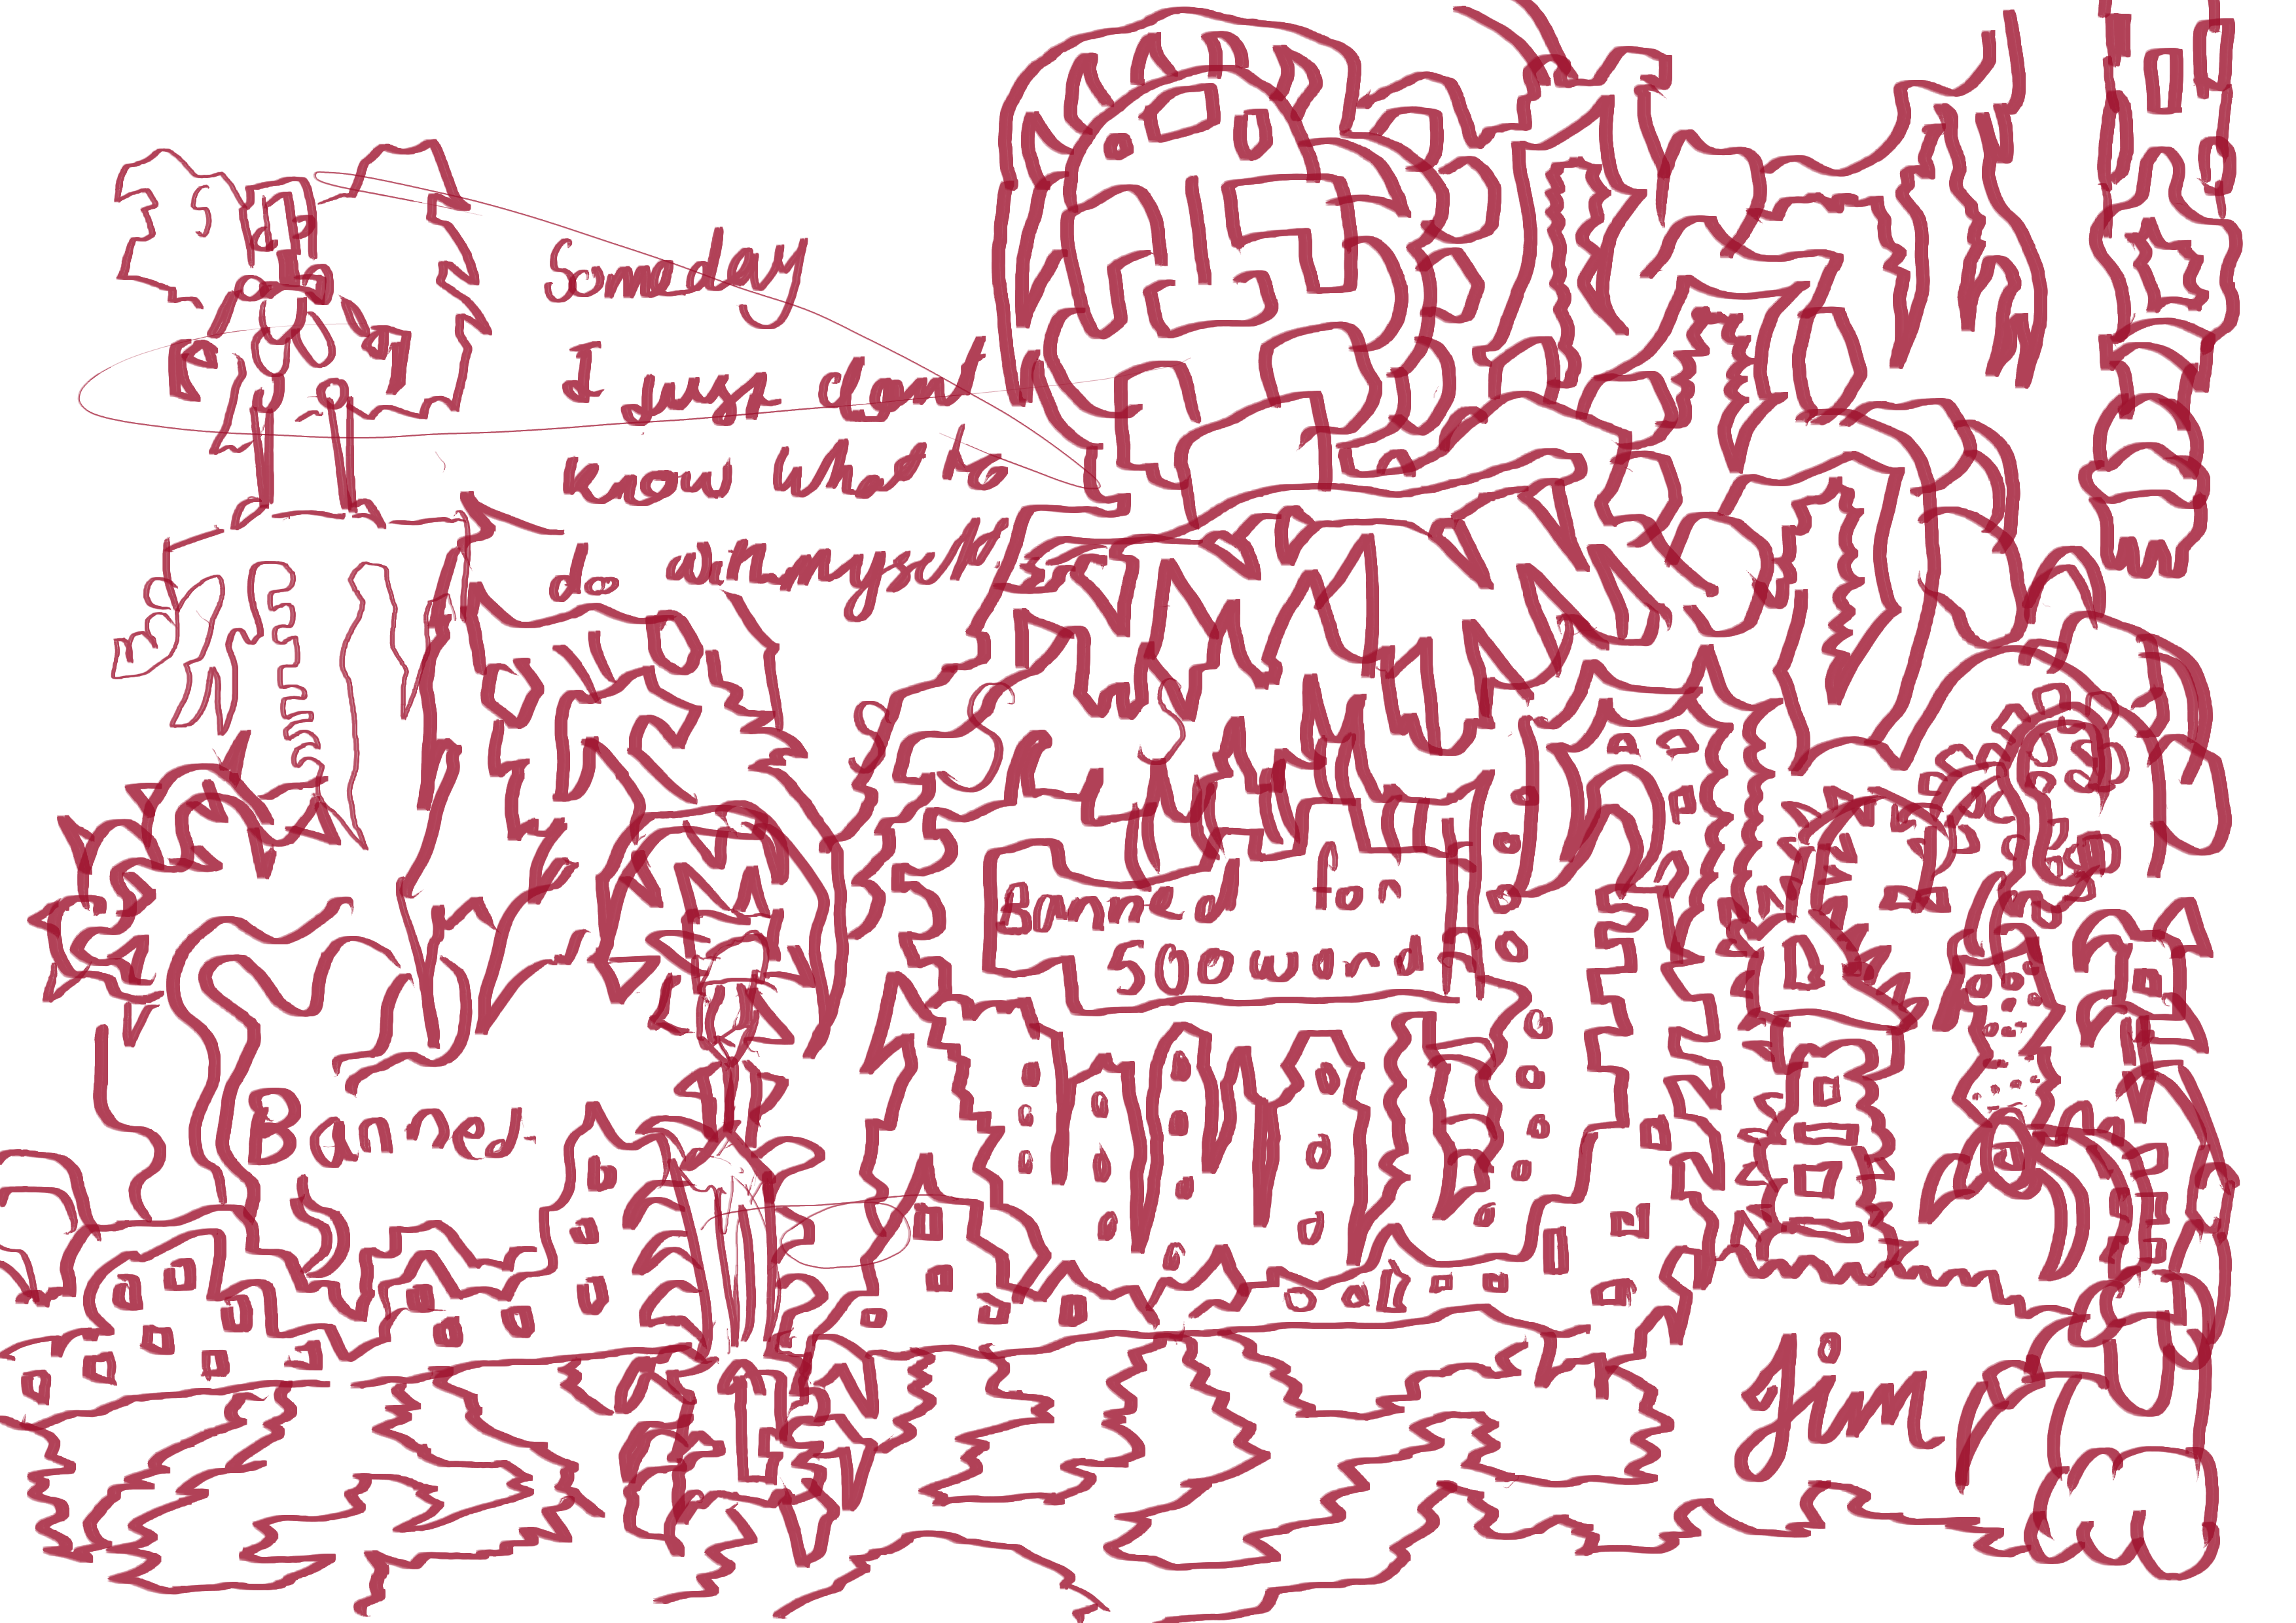 Someday
I just dont
know what to
do winmyself
Banned for
500word
Banned
Jim